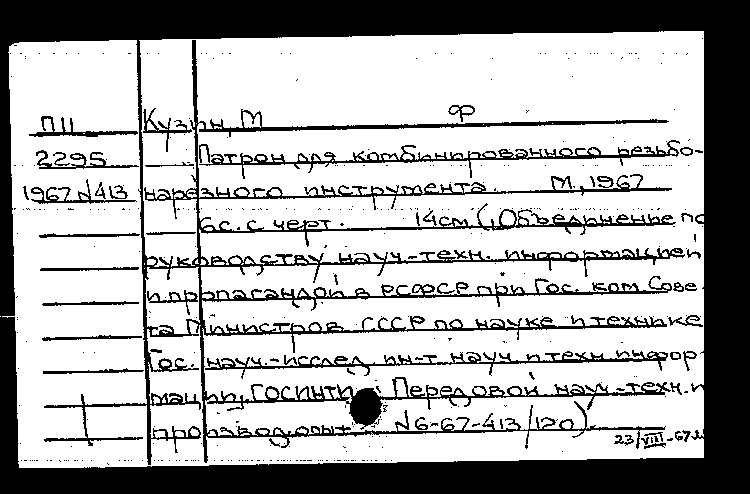 П11 Кузин, М Ф
2295 Патрон для комбинированного резьбо-
1967 №413 нарезного инструмента. М, 1967
6с. с черт. 14см (Объединение по
руководству науч.-техн. информацией
и пропагандой в РСФСР при Гос. ком. Сове-
та Министров СССР по науке и технике
Гос. науч.-исслед. ин-т науч. и техн. инфор-
мации, ГОСИНТИ Передовой науч.-техн. и
производ. опыт №6-67-413/120).
23/VIII-67